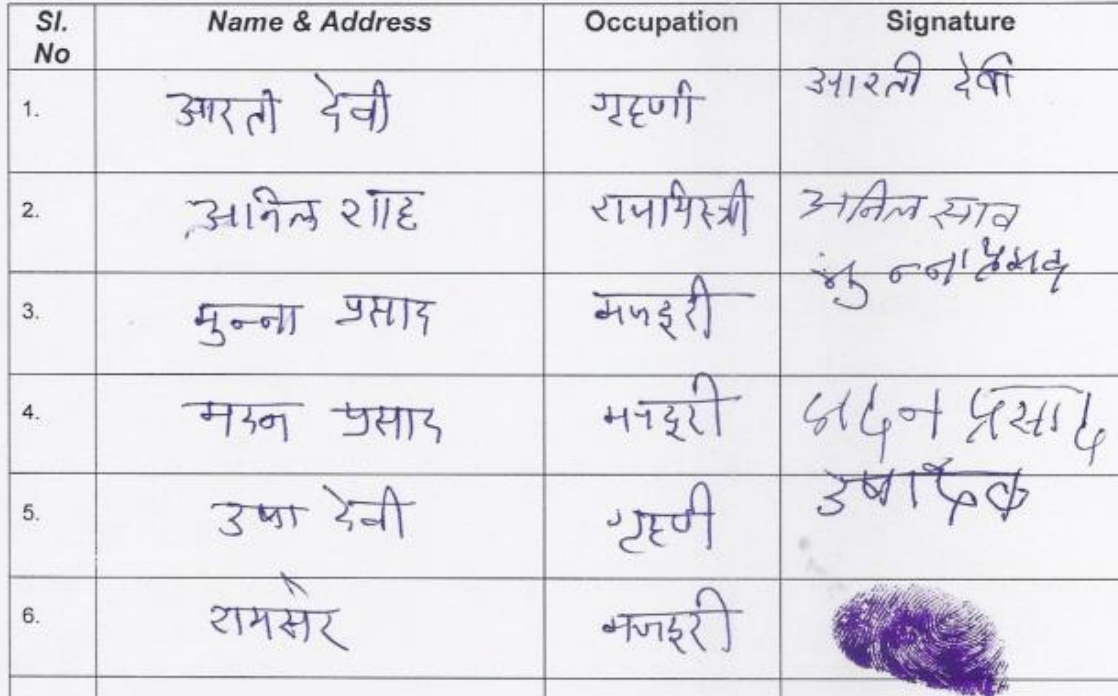 Sl. No Name & Address Occupation Signature
1. आरती देवी गृहणी आरती देवी
2. अनिल शाह राजमिस्त्री अनिल साव
3. मुन्ना प्रसाद मजदुरी मुन्ना प्रसाद
4. मदन प्रसाद मजदुरी मदन प्रसाद
5. उषा देवी गृहणी उषा
6. रामसेर मजदुरी